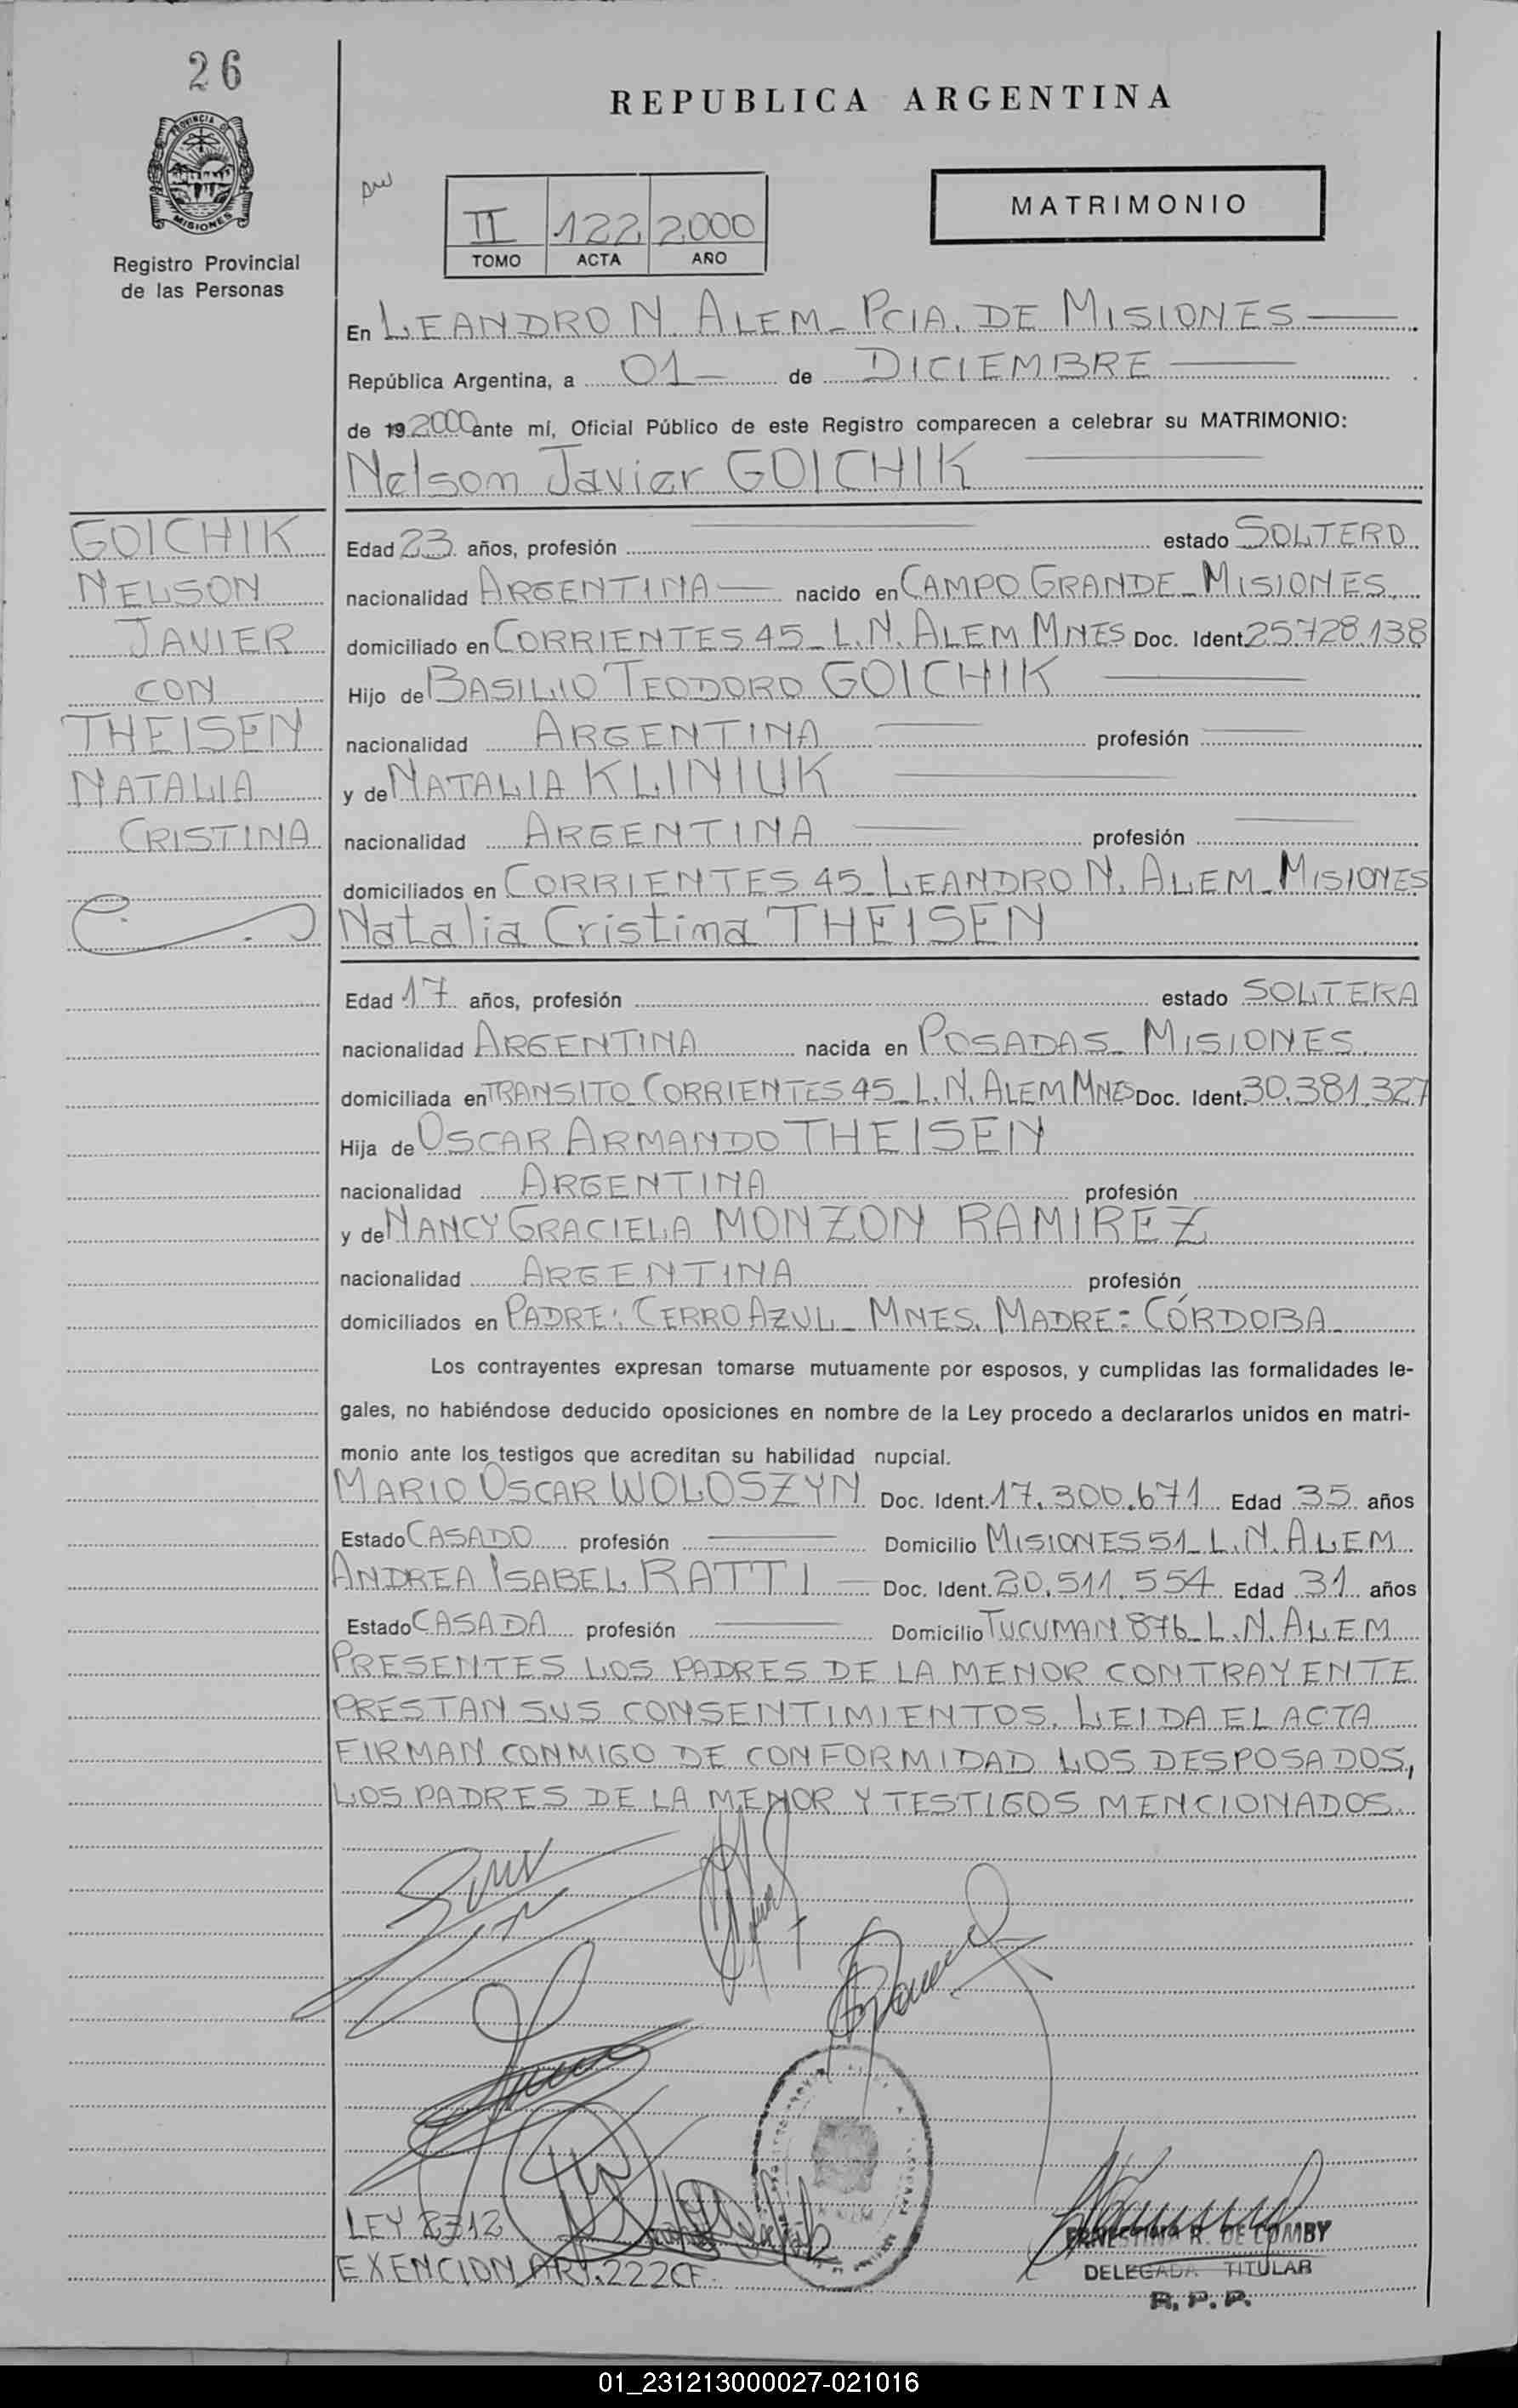 26
REPUBLICA ARGENTINA
PROVINCIA DE
MISIONES
Registro Provincial
de las Personas
II 122 2000
TOMO ACTA AÑO
MATRIMONIO
En LEANDRO N. ALEM - PCIA. DE MISIONES
República Argentina, a 01 de DICIEMBRE
de 19 2000 ante mí, Oficial Público de este Registro comparecen a celebrar su MATRIMONIO:
Nelson Javier GOICHIK
GOICHIK
NELSON
JAVIER
CON
THEISEN
NATALIA
CRISTINA
Edad 23 años, profesión estado SOLTERO
nacionalidad ARGENTINA nacido en CAMPO GRANDE - MISIONES
domiciliado en CORRIENTES 45 - L.N. ALEM MNES Doc. Ident. 25.728.138
Hijo de BASILIO TEODORO GOICHIK
nacionalidad ARGENTINA profesión
y de NATALIA KLINIUK
nacionalidad ARGENTINA profesión
domiciliados en CORRIENTES 45 - LEANDRO N. ALEM - MISIONES
Natalia Cristina THEISEN
Edad 17 años, profesión estado SOLTERA
nacionalidad ARGENTINA nacida en POSADAS - MISIONES
domiciliada en TRANSITO CORRIENTES 45 - L.N. ALEM MNES Doc. Ident. 30.381.327
Hija de OSCAR ARMANDO THEISEN
nacionalidad ARGENTINA profesión
y de NANCY GRACIELA MONZON RAMIREZ
nacionalidad ARGENTINA profesión
domiciliados en PADRE: CERRO AZUL - MNES. MADRE: CÓRDOBA
Los contrayentes expresan tomarse mutuamente por esposos, y cumplidas las formalidades le-
gales, no habiéndose deducido oposiciones en nombre de la Ley procedo a declararlos unidos en matri-
monio ante los testigos que acreditan su habilidad nupcial.
MARIO OSCAR WOLOSZYN Doc. Ident. 17.300.671 Edad 35 años
Estado CASADO profesión Domicilio MISIONES 51 - L.N. ALEM
ANDREA ISABEL RATTI Doc. Ident. 20.511.554 Edad 31 años
Estado CASADA profesión Domicilio TUCUMAN 876 - L.N. ALEM
PRESENTES LOS PADRES DE LA MENOR CONTRAYENTE
PRESTAN SUS CONSENTIMIENTOS. LEIDA EL ACTA
FIRMAN CONMIGO DE CONFORMIDAD LOS DESPOSADOS,
LOS PADRES DE LA MENOR Y TESTIGOS MENCIONADOS.
LEY 2712
EXENCION ART. 222 CF.
ERNESTINA R. DE COMBY
DELEGADA TITULAR
R. P. P.
01_231213000027-021016